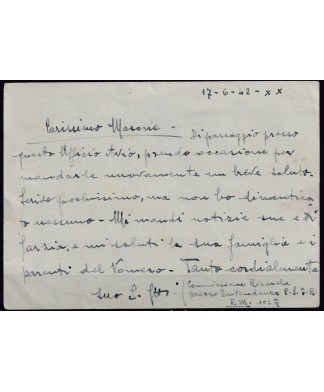 17-6-42-XX
Carissimo Masone -
Di passaggio presso
questo Ufficio , prendo occasione per
mandarle nuovamente un breve saluto.
Scrivo pochissimo, ma non ho dimentica
to nessuno - Mi mandi notizie sue e di
, e mi saluti la sua famiglia e i
parenti del Vomero. Tanto cordialmente
Suo
Commissione
presso Intendenza C.S.I.R.
P.M. 102